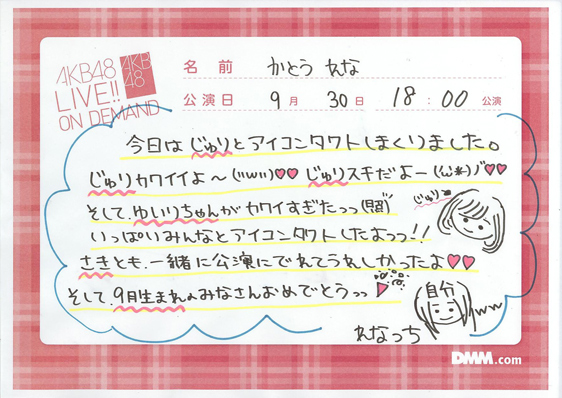 AKB48
LIVE!!
ON DEMAND
AKB
48
名前 かとう れな
公演日 9月 30日 18:00 公演
今日はじゅりとアイコンタクトしまくりました。
じゅりカワイイよ〜(ııωıı)♥♥ じゅりスキだよー(ω*)ノ"♥♥
そして、ゆいりちゃんがカワイすぎたっっ(照)
じゅり
いっぱいみんなとアイコンタクトしたよっっ!!
さきとも、一緒に公演にでれてうれしかったよ♥♥
そして、9月生まれのみなさんおめでとうっっ
自分
ww
れなっち
DMM.com